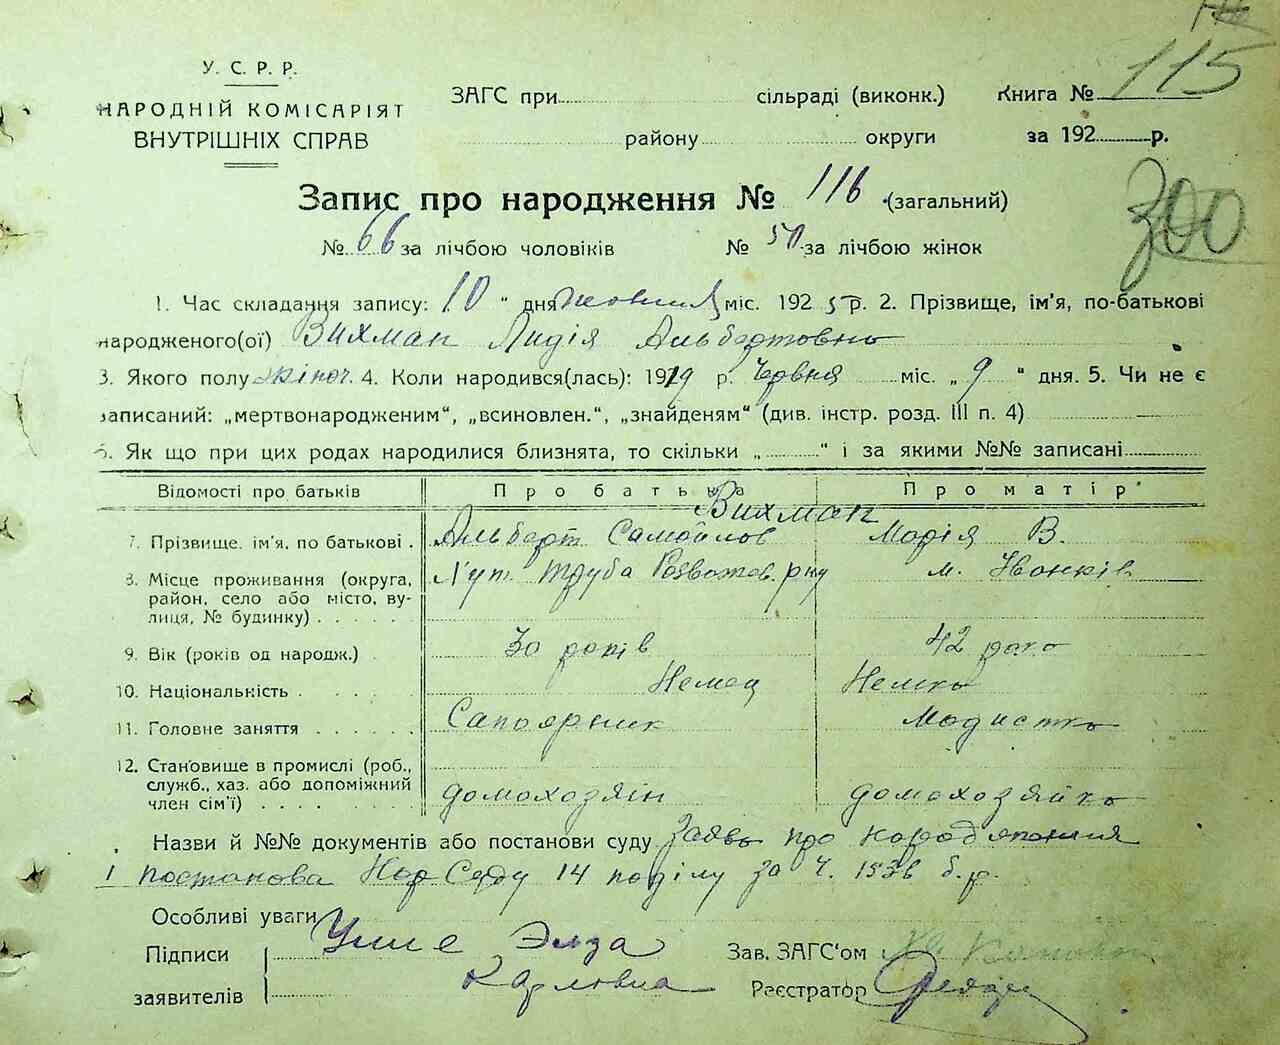 115
У. С. Р. Р.
НАРОДНІЙ КОМІСАРІЯТ
ВНУТРІШНІХ СПРАВ
ЗАГС при сільраді (виконк.) Книга №
району округи за 192 р.
300
Запис про народження № 116 (загальний)
№ 66 за лічбою чоловіків № 50 за лічбою жінок
1. Час складання запису: 10 " дня жовтня міс. 192 5 р. 2. Прізвище, ім'я, по-батькові
народженого(ої) Вихман Лидія Альбертовна
3. Якого полу жіноч. 4. Коли народився(лась): 1919 р. Червня міс. „ 9 " дня. 5. Чи не є
записаний: „мертвонародженим", „всиновлен.", „знайденям" (див. інстр. розд. III п. 4)
6. Як що при цих родах народилися близнята, то скільки „ " і за якими №№ записані
Відомості про батьків Про батька Про матір
Вихман
7. Прізвище, ім'я, по батькові . Альберт Самойлов Марія В.
8. Місце проживання (округа, Хут. Труба Розважов. р-ну м.
район, село або місто, ву-
лиця, № будинку) . . . . .
9. Вік (років од народж.) . 30 років 42 рока
10. Національність . . . . . Немец Немка
11. Головне заняття . . . . . . Сапоярник Модистка
12. Становище в промислі (роб.,
служб., хаз. або допоміжний
член сім'ї) . . . . . . . . домохозяін домохозяйка
Назви й №№ документів або постанови суду Заява про народження
і постанова Нар Суду 14 поділу за Ч. 1536 б.р.
Особливі уваги
Підписи Элза Зав. ЗАГС'ом
заявителів Карловна Реєстратор